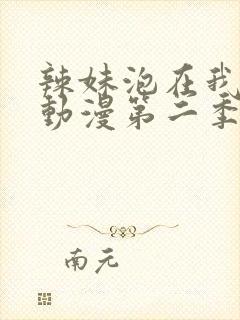 辣妹泡在我
動漫第二季
南元